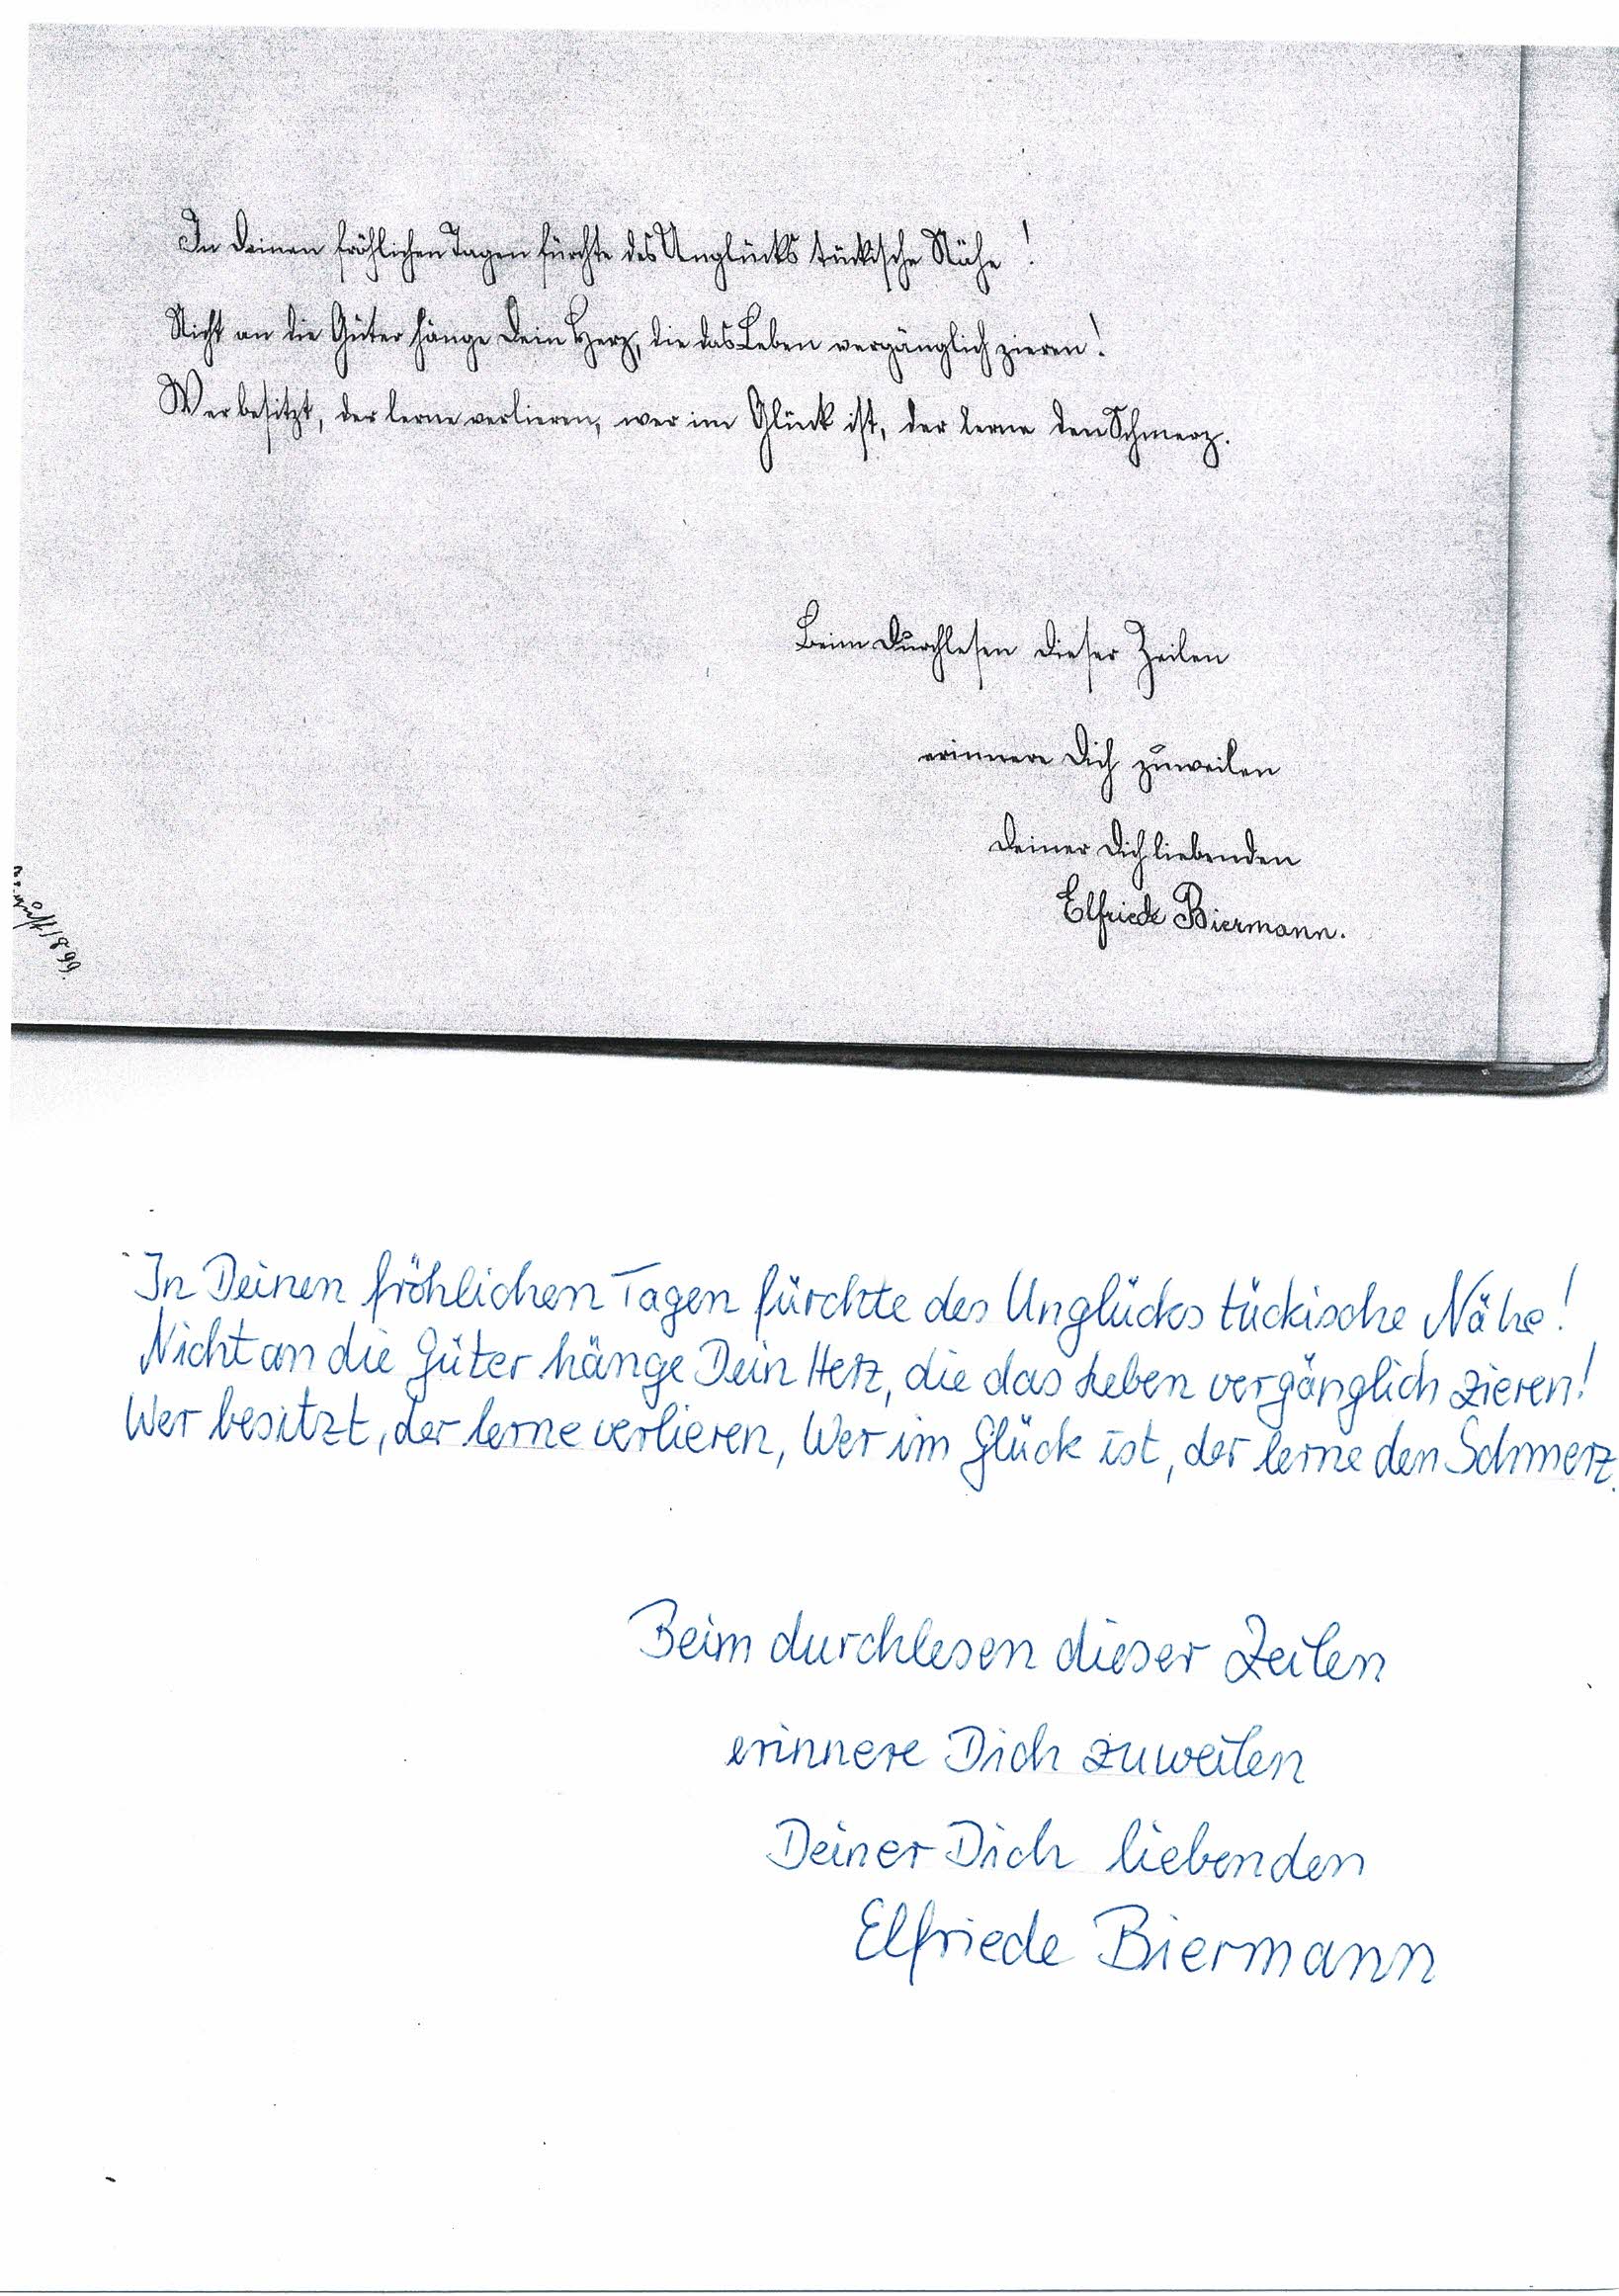 In Deinen fröhlichen Tagen fürchte des Unglücks tückische Nähe!
Nicht an die Güter hänge Dein Herz, die das Leben vergänglich zieren!
Wer besitzt, der lerne verlieren, wer im Glück ist, der lerne den Schmerz.
Beim Durchlesen dieser Zeilen
erinnere Dich zuweilen
Deiner Dich liebenden
Elfriede Biermann.
In Deinen fröhlichen Tagen fürchte des Unglücks tückische Nähe!
Nicht an die Güter hänge Dein Herz, die das Leben vergänglich zieren!
Wer besitzt, der lerne verlieren, Wer im Glück ist, der lerne den Schmerz.
Beim durchlesen dieser Zeilen
erinnere Dich zuweilen
Deiner Dich liebenden
Elfriede Biermann